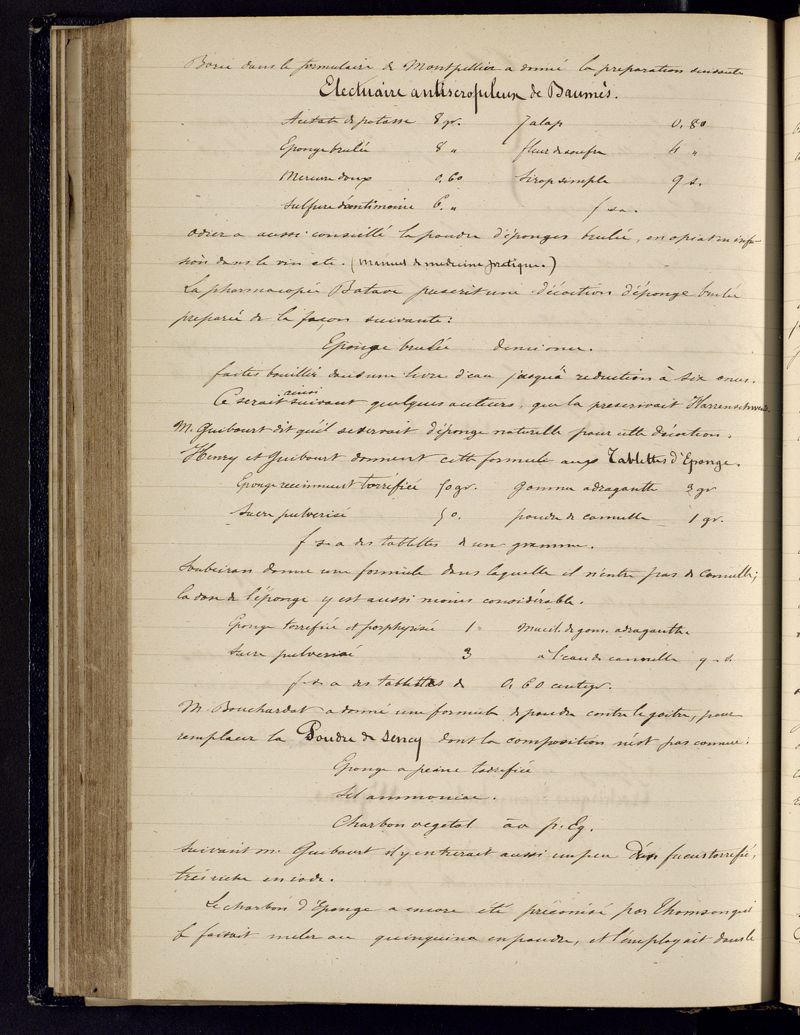 Borie dans le formulaire de Montpellier a donné la préparation suivante
Electuaire antiscrofuleux de Baumés.
Acétate de potasse 8 gr. Jalap 0,80
Eponge brulée 8 " fleur de soufre 4 "
Mercure doux 0,60 Sirop simple q s.
Sulfure d'antimoine 6. " f s a.
Odier a aussi conseillé la poudre d'éponges brulée, en opiat en infu-
sion dans le vin etc. (Manuel de medecine pratique.)
La pharmacopée Batave prescrit une décoction d'éponge brulée
preparée de la façon suivante:
Eponge brulée demi once.
faites bouillir dans une livre d'eau jusqu'à reduction à six onces.
Ce serait ainsi suivant quelques auteurs, que la prescrivait
M. Guibourt dit qu'il se servait d'éponge naturelle pour cette décoction.
Henry et Guibourt donnent cette formule aux Tablettes d'Eponge.
Eponge recemment torréfiée 50 gr. Gomme adragante 3 gr
Sucre pulverisé 50. poudre de cannelle 1 gr.
f s a des tablettes de un gramme.
Soubeiran donne une formule dans laquelle il n'entre pas de cannelle;
la dose de l'éponge y est aussi moins considérable.
Eponge torréfiée et porphyrisée 1 Mucil. de gom. adraganthe
Sucre pulverisé 3 à l'eau de cannelle q. s.
f. s. a des tablettes de 0,60 centigr.
M. Bouchardat a donné une formule de poudre contre le goitre, pour
remplacer la Poudre de Sency dont la composition n'est pas connue:
Eponge a peine torrefiée
Sel ammoniac.
Charbon vegetal aa p. Eg.
Suivant M. Guibourt il y entrerait aussi un peu fucus torréfié,
très riche en iode.
Le charbon d'Eponge a encore été préconisé par Thomson qui
le faisait mêler au quinquina en poudre, et l'employait dans le